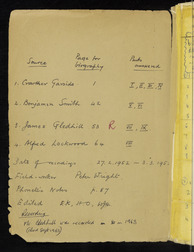 Source Page for biography Parts concerned
1. Crowther Garside 1 I, II, IV, V
2. Benjamin Smith 42 V, VI
3. James Gledhill 53 R VI, VII
4. Alfred Lockwood 64 VIII
Date of recordings 27.2.1952 - 2.3.1952
Field-worker Peter Wright
Phonetic Notes p. 57
Edited
Recording
Gledhill was recorded in 1952